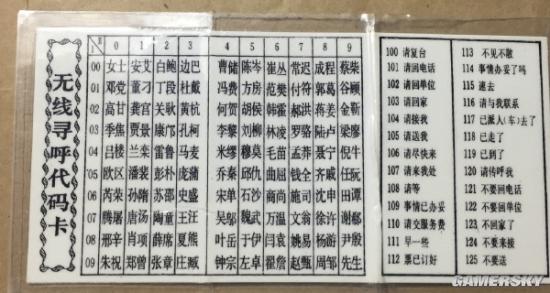 无线寻呼代码卡
0 1 2 3 4 5 6 7 8 9
00 女士 安艾 白鲍 边巴 曹储 陈岑 崔丛 常迟 成程 蔡柴
01 邓党 丁刀 段杜 戴 冯费 方房 范樊 符付 郭葛 谷顾
02 高甘 龚宫 关耿 黄杭 何贺 胡侯 韩霍 郝洪 姜蒋 金靳
03 季焦 贾景 康邝 孔柯 李黎 刘柳 林凌 罗骆 陆卢 梁廖
04 吕楼 兰栾 鲁雷 马麦 缪穆 莫孟 毛苗 聂宁 倪牛
05 欧区 潘裴 彭朴 庞蒲 乔秦 邱石 任阮
06 芮荣 孙隋 苏邵 史盛 宋单 石沙 商尚 施司 沈舒 田谭
07 腾屠 唐汤 陶童 王汪 吴邬 魏武 万温 韦文 徐许 谢
08 邢辛 肖项 薛席 夏熊 叶岳 于伊 袁闫 姚易 杨颜 尹殷
09 朱祝 郑曾 张章 庄臧 钟宗 左卓 翟詹 赵甄 周邹 先生
100 请复台
101 请回电话
102 请回单位
103 请回家
104 请接我
105 请送我
106 请尽快来
107 请来我处
108 请等
109 事情已办妥
110 请交服务费
111 早一些
112 票已订好
113 不见不散
114 事情办妥了吗
115 速去
116 请与我联系
117 已派人(车)去了
118 已走了
119 已到了
120 请传呼我
121 不要回电话
122 不要回单位
123 不回家了
124 不要来接
125 不要送
GAMERSKY